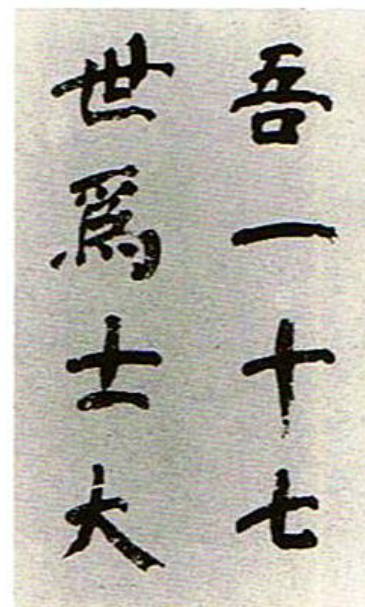 吾一十七
世爲士大